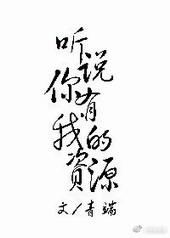 听说你有我的資源
文/青端